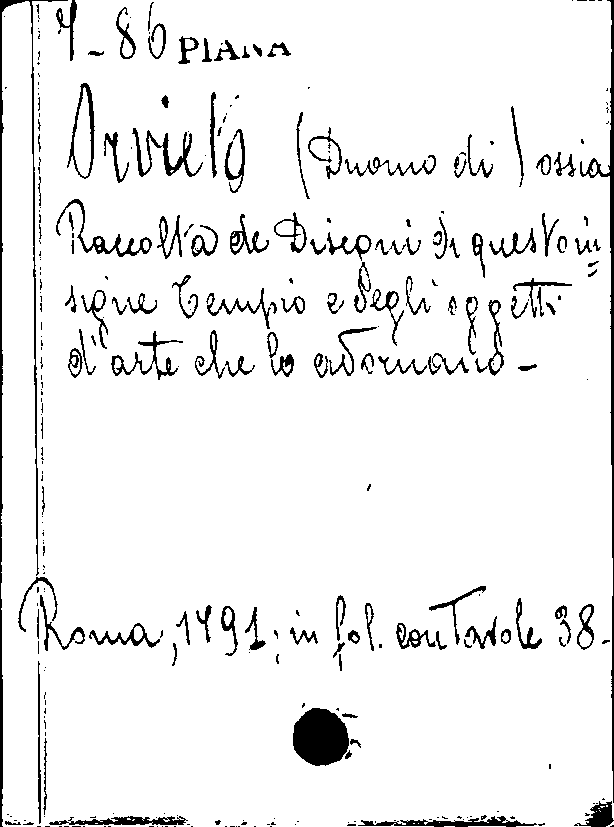 7-86 PIANA
Orvieto (Duomo di) ossia
Raccolta de Disegni di questo in=
signe Tempio e degli oggetti
d'arte che lo adornano-
Roma, 1791; in fol. con Tavole 38-